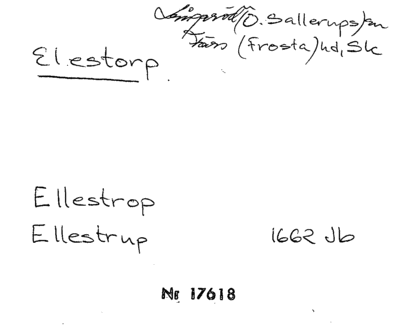 Långaröd (Ö. Sallerups) sn
Färs (Frosta) hd, Sk
Elestorp.
Ellestrop
Ellestrup 1662 Jb
Nr 17618